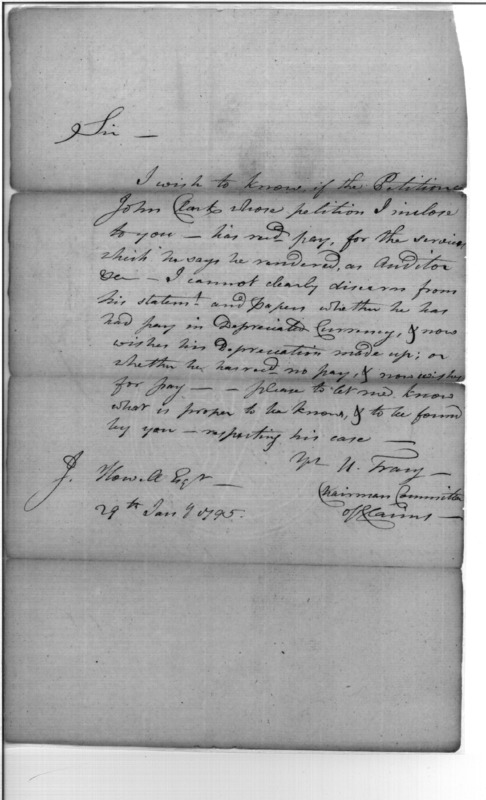 Sir —
I wish to know, if the Petitione
John Clark whose petition I inclose
to you — has recd. pay, for the services
which he says he rendered, as Auditor
&c — I cannot clearly discern from
his statemt. and Papers whether he has
had pay in Depreciated Currency, & now
wishes his Depreciation made up; or
whether he has recd. no pay, & now wishes
for pay — — please to let me know
what is proper to be known, & to be found
by you — respecting his case —
Yr U. Tracy —
Chairman Committee
of Claims —
J. Howell Esqr —
29th Jany 1795.